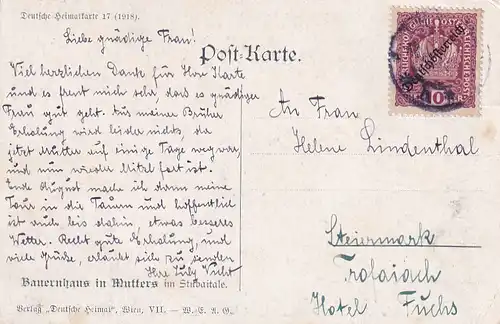 Deutsche Heimatkarte 17 (1918).
Post-Karte.
Liebe gnädige Frau!
Viel herzlichen Dank für Ihre Karte
und es freut mich sehr, dass es gnädiger
Frau gut geht. Aus meiner
Erholung wird leider nichts, da
jetzt Mutter auf einige Tage weg war,
und nun wieder Mitzl fort ist.
Ende August mache ich dann meine
Tour in die Tauern und hoffentlich
ist auch bis dahin, etwas besseres
Wetter. Recht gute Erholung, und
viele Grüße, erlaubt sich zu senden
Ihre July
Bauernhaus in Mutters im Stubaitale.
Verlag „Deutsche Heimat", Wien, VII. — W.-E. A. G.
Deutschösterreich
10
An Frau
Helene Lindenthal
Steiermark
Trofaiach
Hotel Fuchs